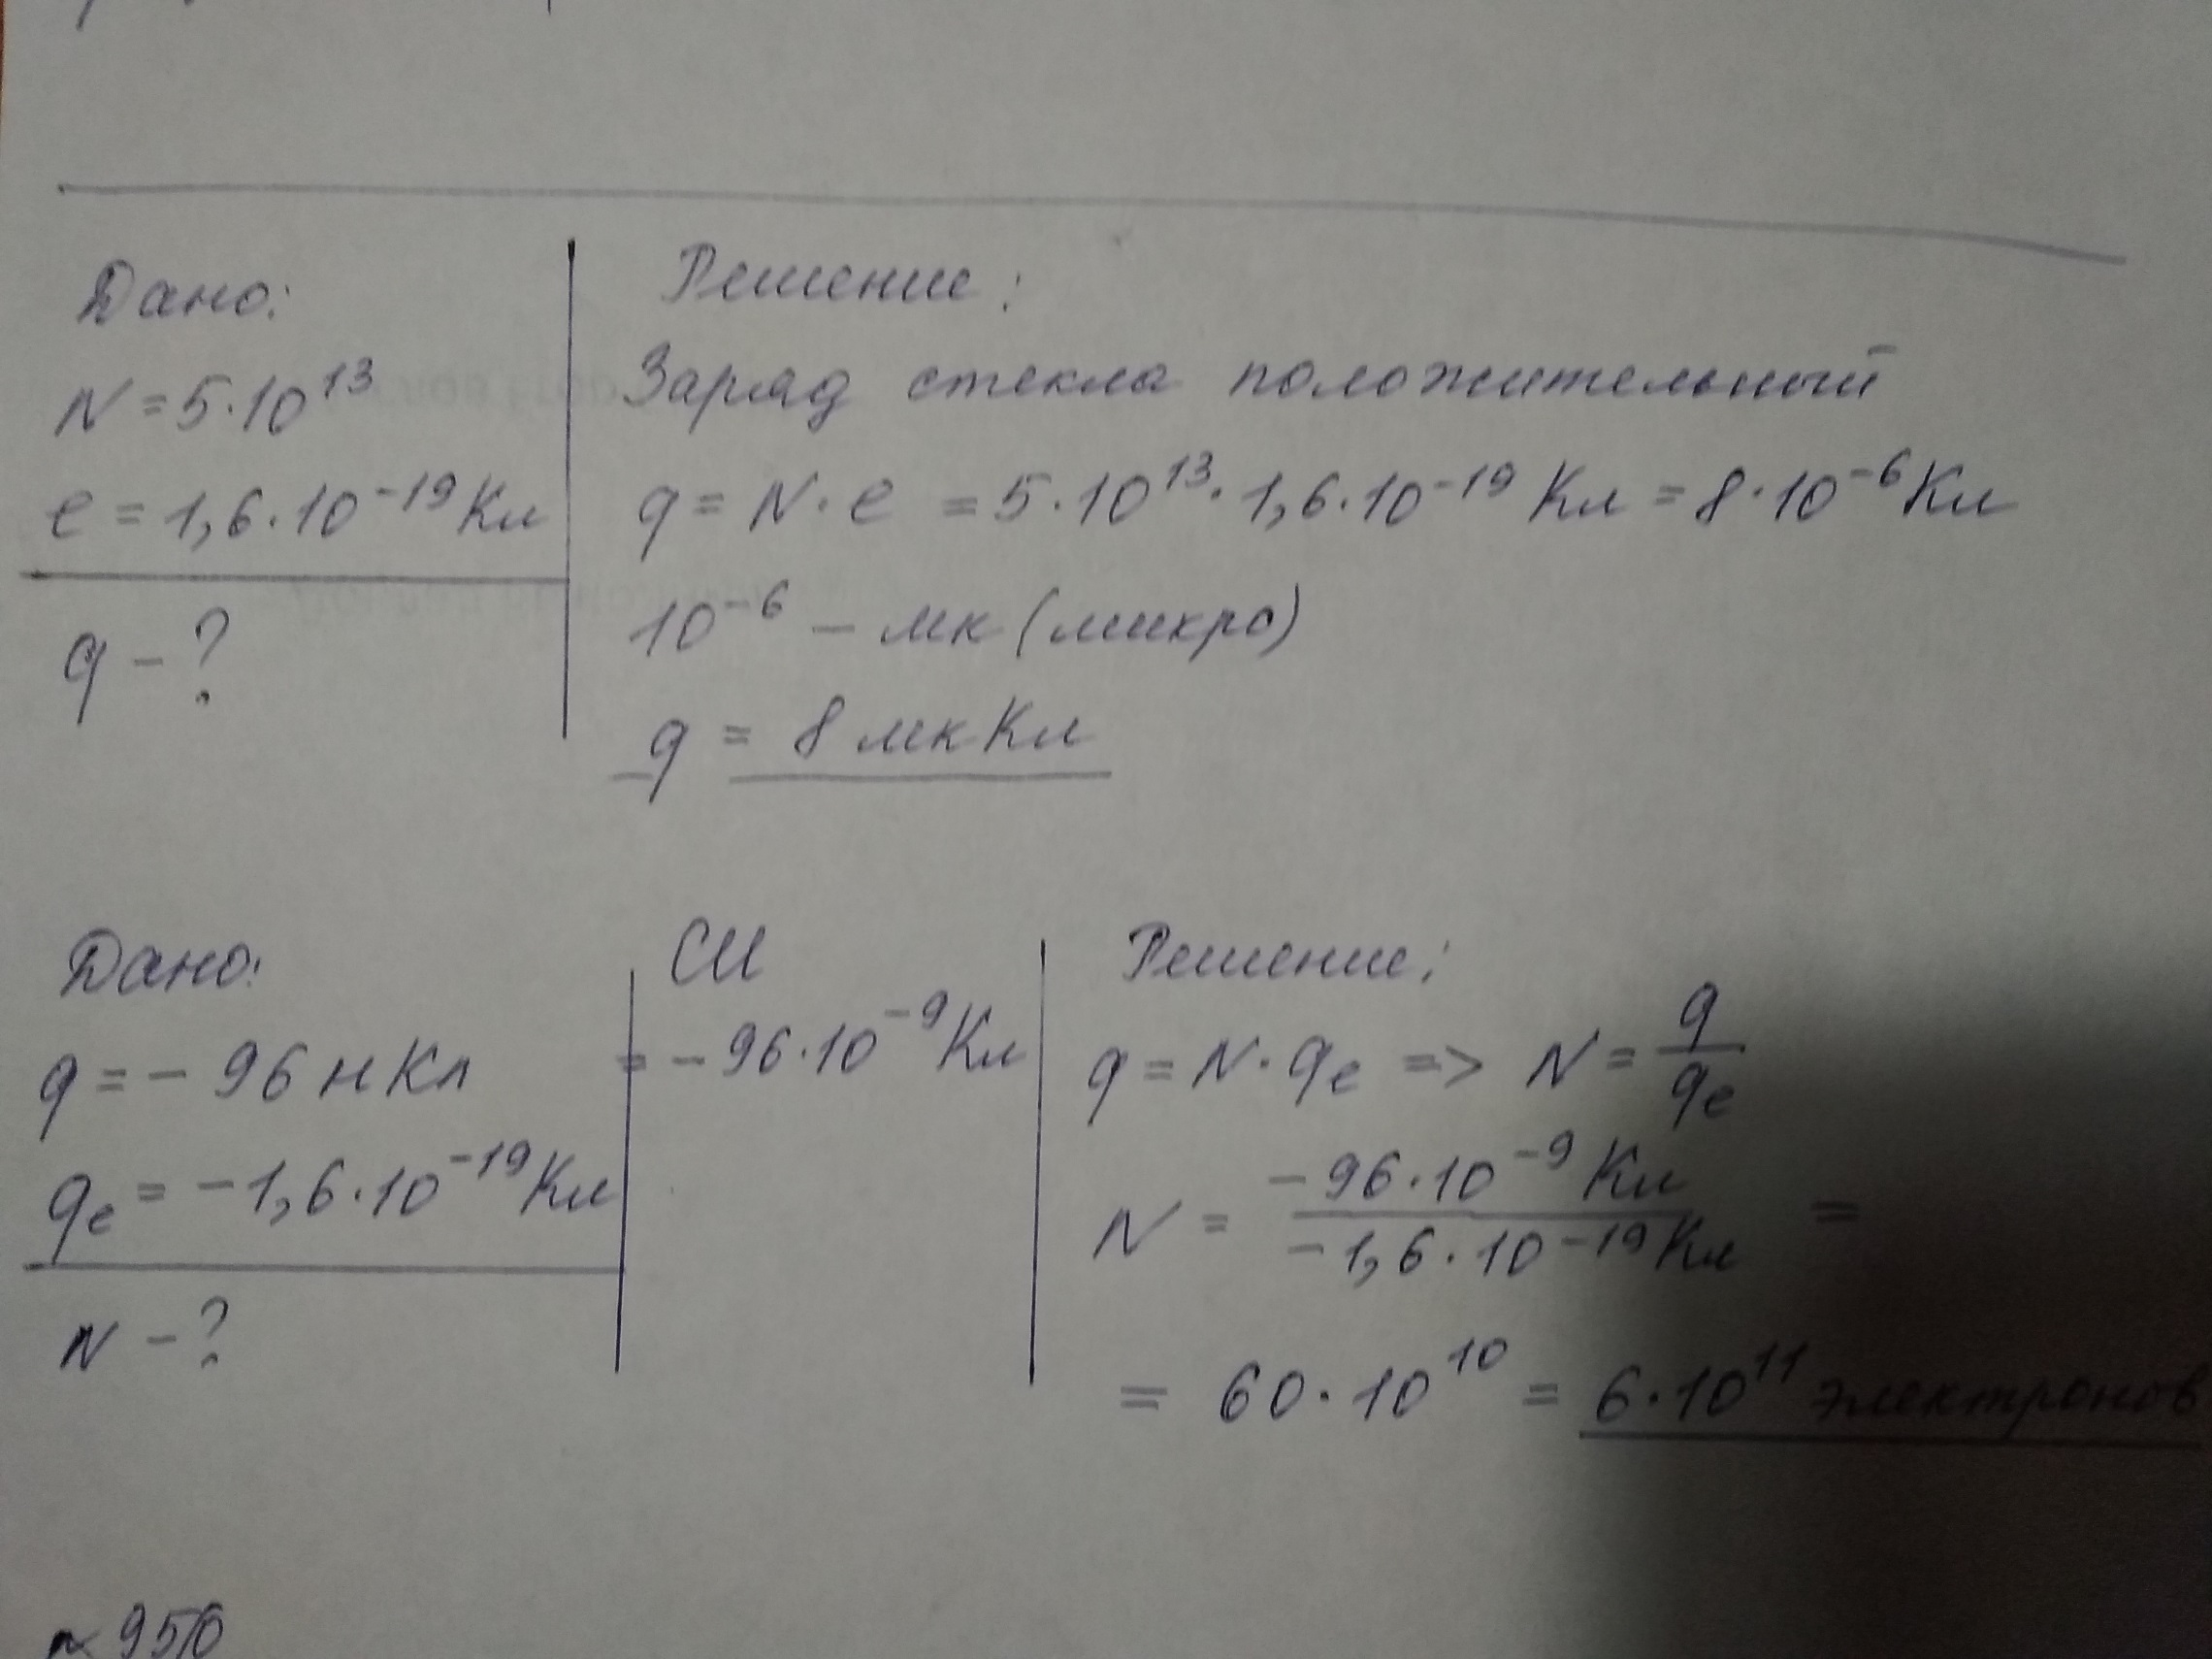 Дано:
N = 5·10¹³
e = 1,6·10⁻¹⁹ Кл
q – ?
Решение:
Заряд стекла положительный
q = N·e = 5·10¹³·1,6·10⁻¹⁹ Кл = 8·10⁻⁶ Кл
10⁻⁶ – мк (микро)
q = 8 мкКл
Дано:
q = – 96 нКл
qe = –1,6·10⁻¹⁹ Кл
N – ?
СИ
= – 96·10⁻⁹ Кл
Решение:
q = N·qe => N = q/qe
N = –96·10⁻⁹ Кл / –1,6·10⁻¹⁹ Кл =
= 60·10¹⁰ = 6·10¹¹ электронов
~ 950